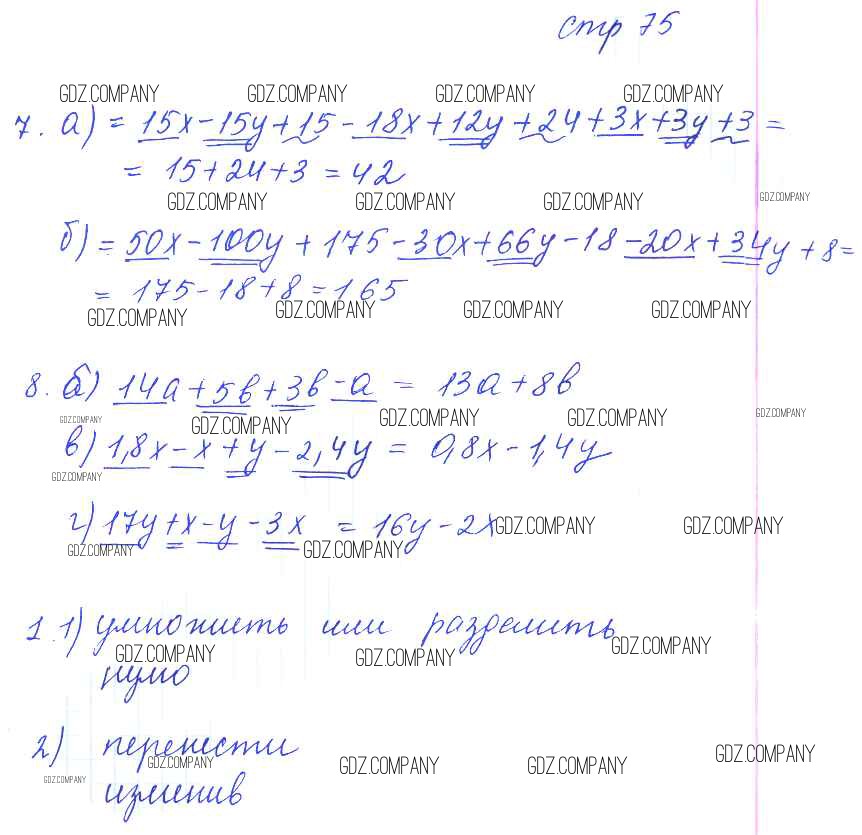 стр 75
GDZ.COMPANY GDZ.COMPANY GDZ.COMPANY GDZ.COMPANY
7. а) = 15x - 15y + 15 - 18x + 12y + 24 + 3x + 3y + 3 =
= 15 + 24 + 3 = 42
GDZ.COMPANY GDZ.COMPANY GDZ.COMPANY GDZ.COMPANY
б) = 50x - 100y + 175 - 30x + 66y - 18 - 20x + 34y + 8 =
= 175 - 18 + 8 = 165
GDZ.COMPANY GDZ.COMPANY GDZ.COMPANY GDZ.COMPANY
8. б) 14a + 5b + 3b - a = 13a + 8b
GDZ.COMPANY GDZ.COMPANY GDZ.COMPANY GDZ.COMPANY GDZ.COMPANY
в) 1,8x - x + y - 2,4y = 0,8x - 1,4y
GDZ.COMPANY
г) 17y + x - y - 3x = 16y - 2x
GDZ.COMPANY GDZ.COMPANY
GDZ.COMPANY GDZ.COMPANY
1. 1) умножить или разделить
GDZ.COMPANY GDZ.COMPANY GDZ.COMPANY
нулю
2) перенести
GDZ.COMPANY GDZ.COMPANY GDZ.COMPANY GDZ.COMPANY
GDZ.COMPANY
изменив